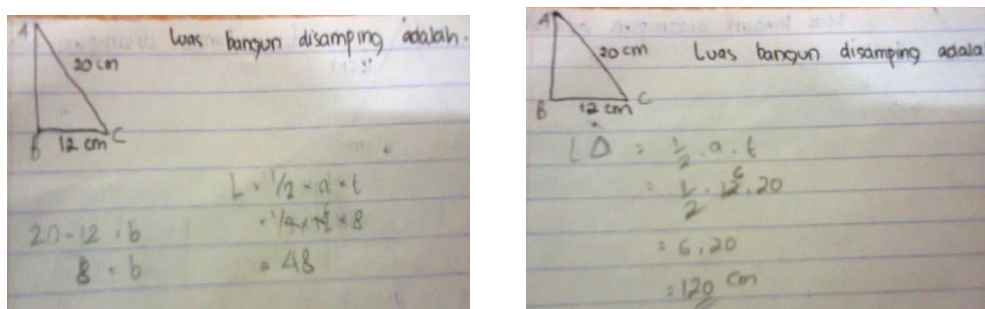 A
20 cm
B 12 cm C
Luas bangun disamping adalah.
L = 1/2 × a × t
= 1/2 × 12 6 × 8
= 48
20 - 12 = b
8 = b
A
20 cm
B 12 cm C
Luas bangun disamping adala
L Δ = 1/2 . a . t
= 1/2 . 12 6 . 20
= 6 . 20
= 120 cm